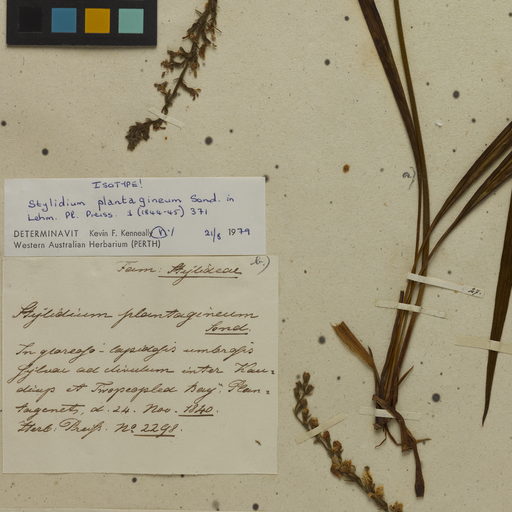 ISOTYPE!
Stylidium plantagineum Sond. in
Lehm. Pl. Preiss. 1 (1844-45) 371
DETERMINAVIT Kevin F. Kenneally 21/8 1979
Western Australian Herbarium (PERTH)
Fam: Stylideae b.)
Stylidium plantagineum
Sond.
In glareoso-lapidosis umbrosis
sylvae ad clivulum inter
et "Twopeopled Bay", Plan=
tagenet, d. 24. Nov. 1840.
Herb: Preiss. No 2298.